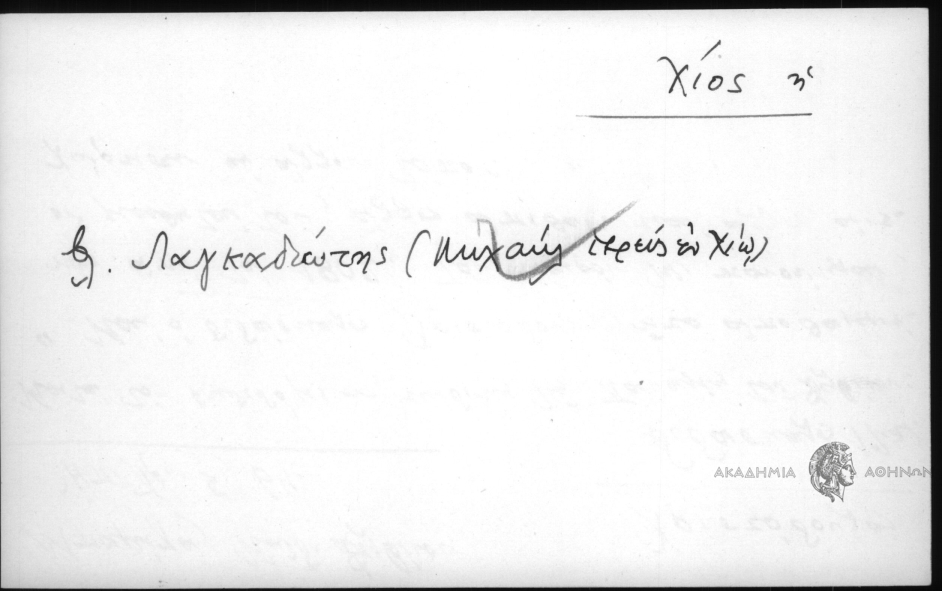 Χίος ἡ
βλ. Λαγκαδιώτης (Μιχαήλ ἱερεὺς ἐν Χίῳ)
ΑΚΑΔΗΜΙΑ ΑΘΗΝΩΝ